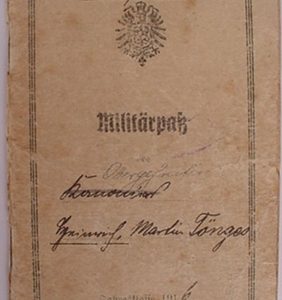 Militärpaß
des
Obergefreiten
Kanonier
Heinrich Martin Tönges
6